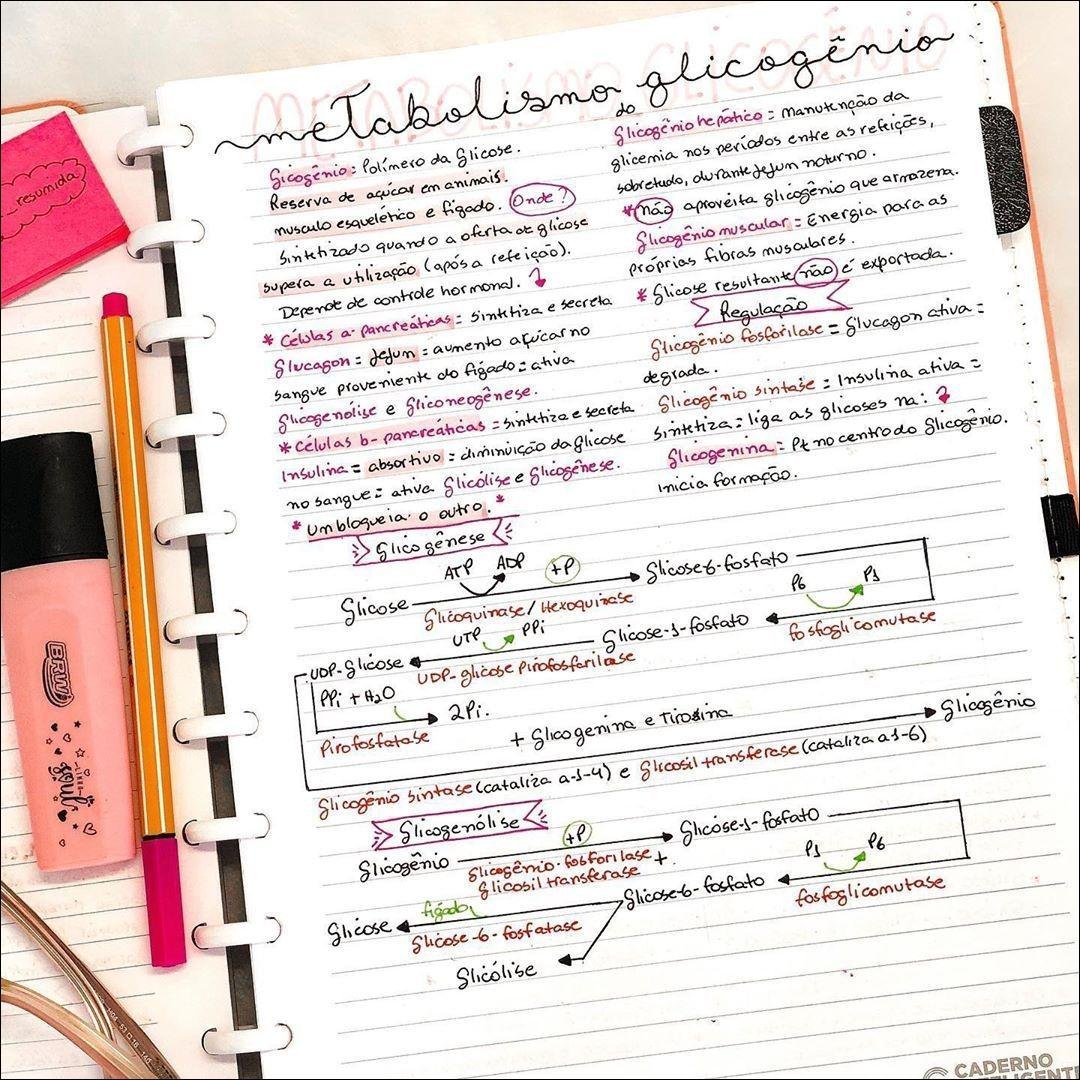 metabolismo do glicogênio
Gicogênio: Polímero da glicose.
Reserva de açúcar em animais.
musculo esquelético e fígado. Onde?
Sintetizado quando a oferta de glicose
supera a utilização (após a refeição).
Depende de controle hormonal.
* Células a-pancreáticas = sintetiza e secreta
Glucagon = Jejum = aumento açúcar no
sangue proveniente do fígado = ativa
Glicogenólise e Gliconeogênese.
* Células b-pancreáticas = sintetiza e secreta
Insulina = absortivo = diminuição da glicose
no sangue = ativa Glicólise e Glicogênese.
* Um bloqueia o outro. *
Glicogênio hepático = Manutenção da
glicemia nos períodos entre as refeições,
sobretudo, durante jejum noturno.
* Não aproveita glicogênio que armazena.
Glicogênio muscular = Energia para as
próprias fibras musculares.
* Glicose resultante não é exportada.
Regulação
Glicogênio fosforilase = Glucagon ativa =
degrada.
Glicogênio sintase = Insulina ativa =
Sintetiza = liga as glicoses na:
Glicogenina = Pt no centro do Glicogênio.
inicia formação.
Glicogênese
ATP ADP +P
Glicose Glicose-6-fosfato
Glicoquinase/Hexoquinase
P6 P1
fosfoglicomutase
Glicose-1-fosfato
UTP PPi
UDP-Glicose
UDP-glicose Pirofosforilase
PPi + H2O
2Pi.
Pirofosfatase
+ Glicogenina e Tirosina
Glicogênio
Glicogênio sintase (cataliza a-1-4) e Glicosil transferase (cataliza a1-6)
Glicogenólise
Glicogênio +P Glicose-1-fosfato
Glicogênio-fosforilase +
Glicosil transferase
P1 P6
fosfoglicomutase
Glicose-6-fosfato
fígado
Glicose
Glicose-6-fosfatase
Glicólise
resumida
BRW
soul
CADERNO